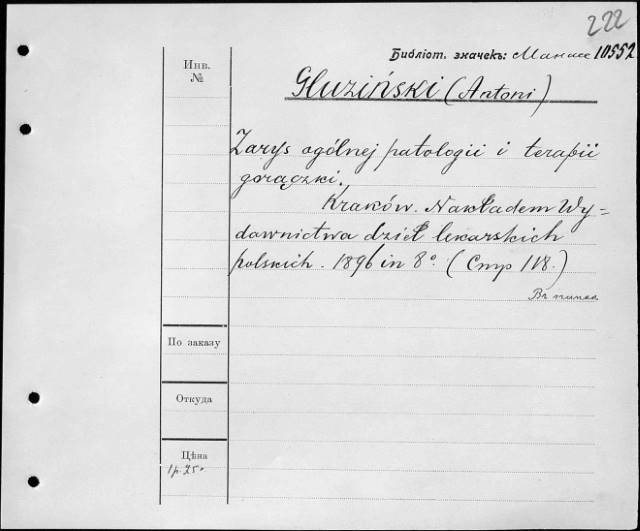 222
Библіот. значекъ: Манасс 10552
Инв.
№
Gluziński (Antoni)
Zarys ogólnej patologii i terapii
gorączki.
Kraków. Nakładem Wy=
dawnictwa dzieł lekarskich
polskich. 1896 in 8° (Стр 118.)
Въ папкѣ
По заказу
Откуда
Цѣна
1р. 25